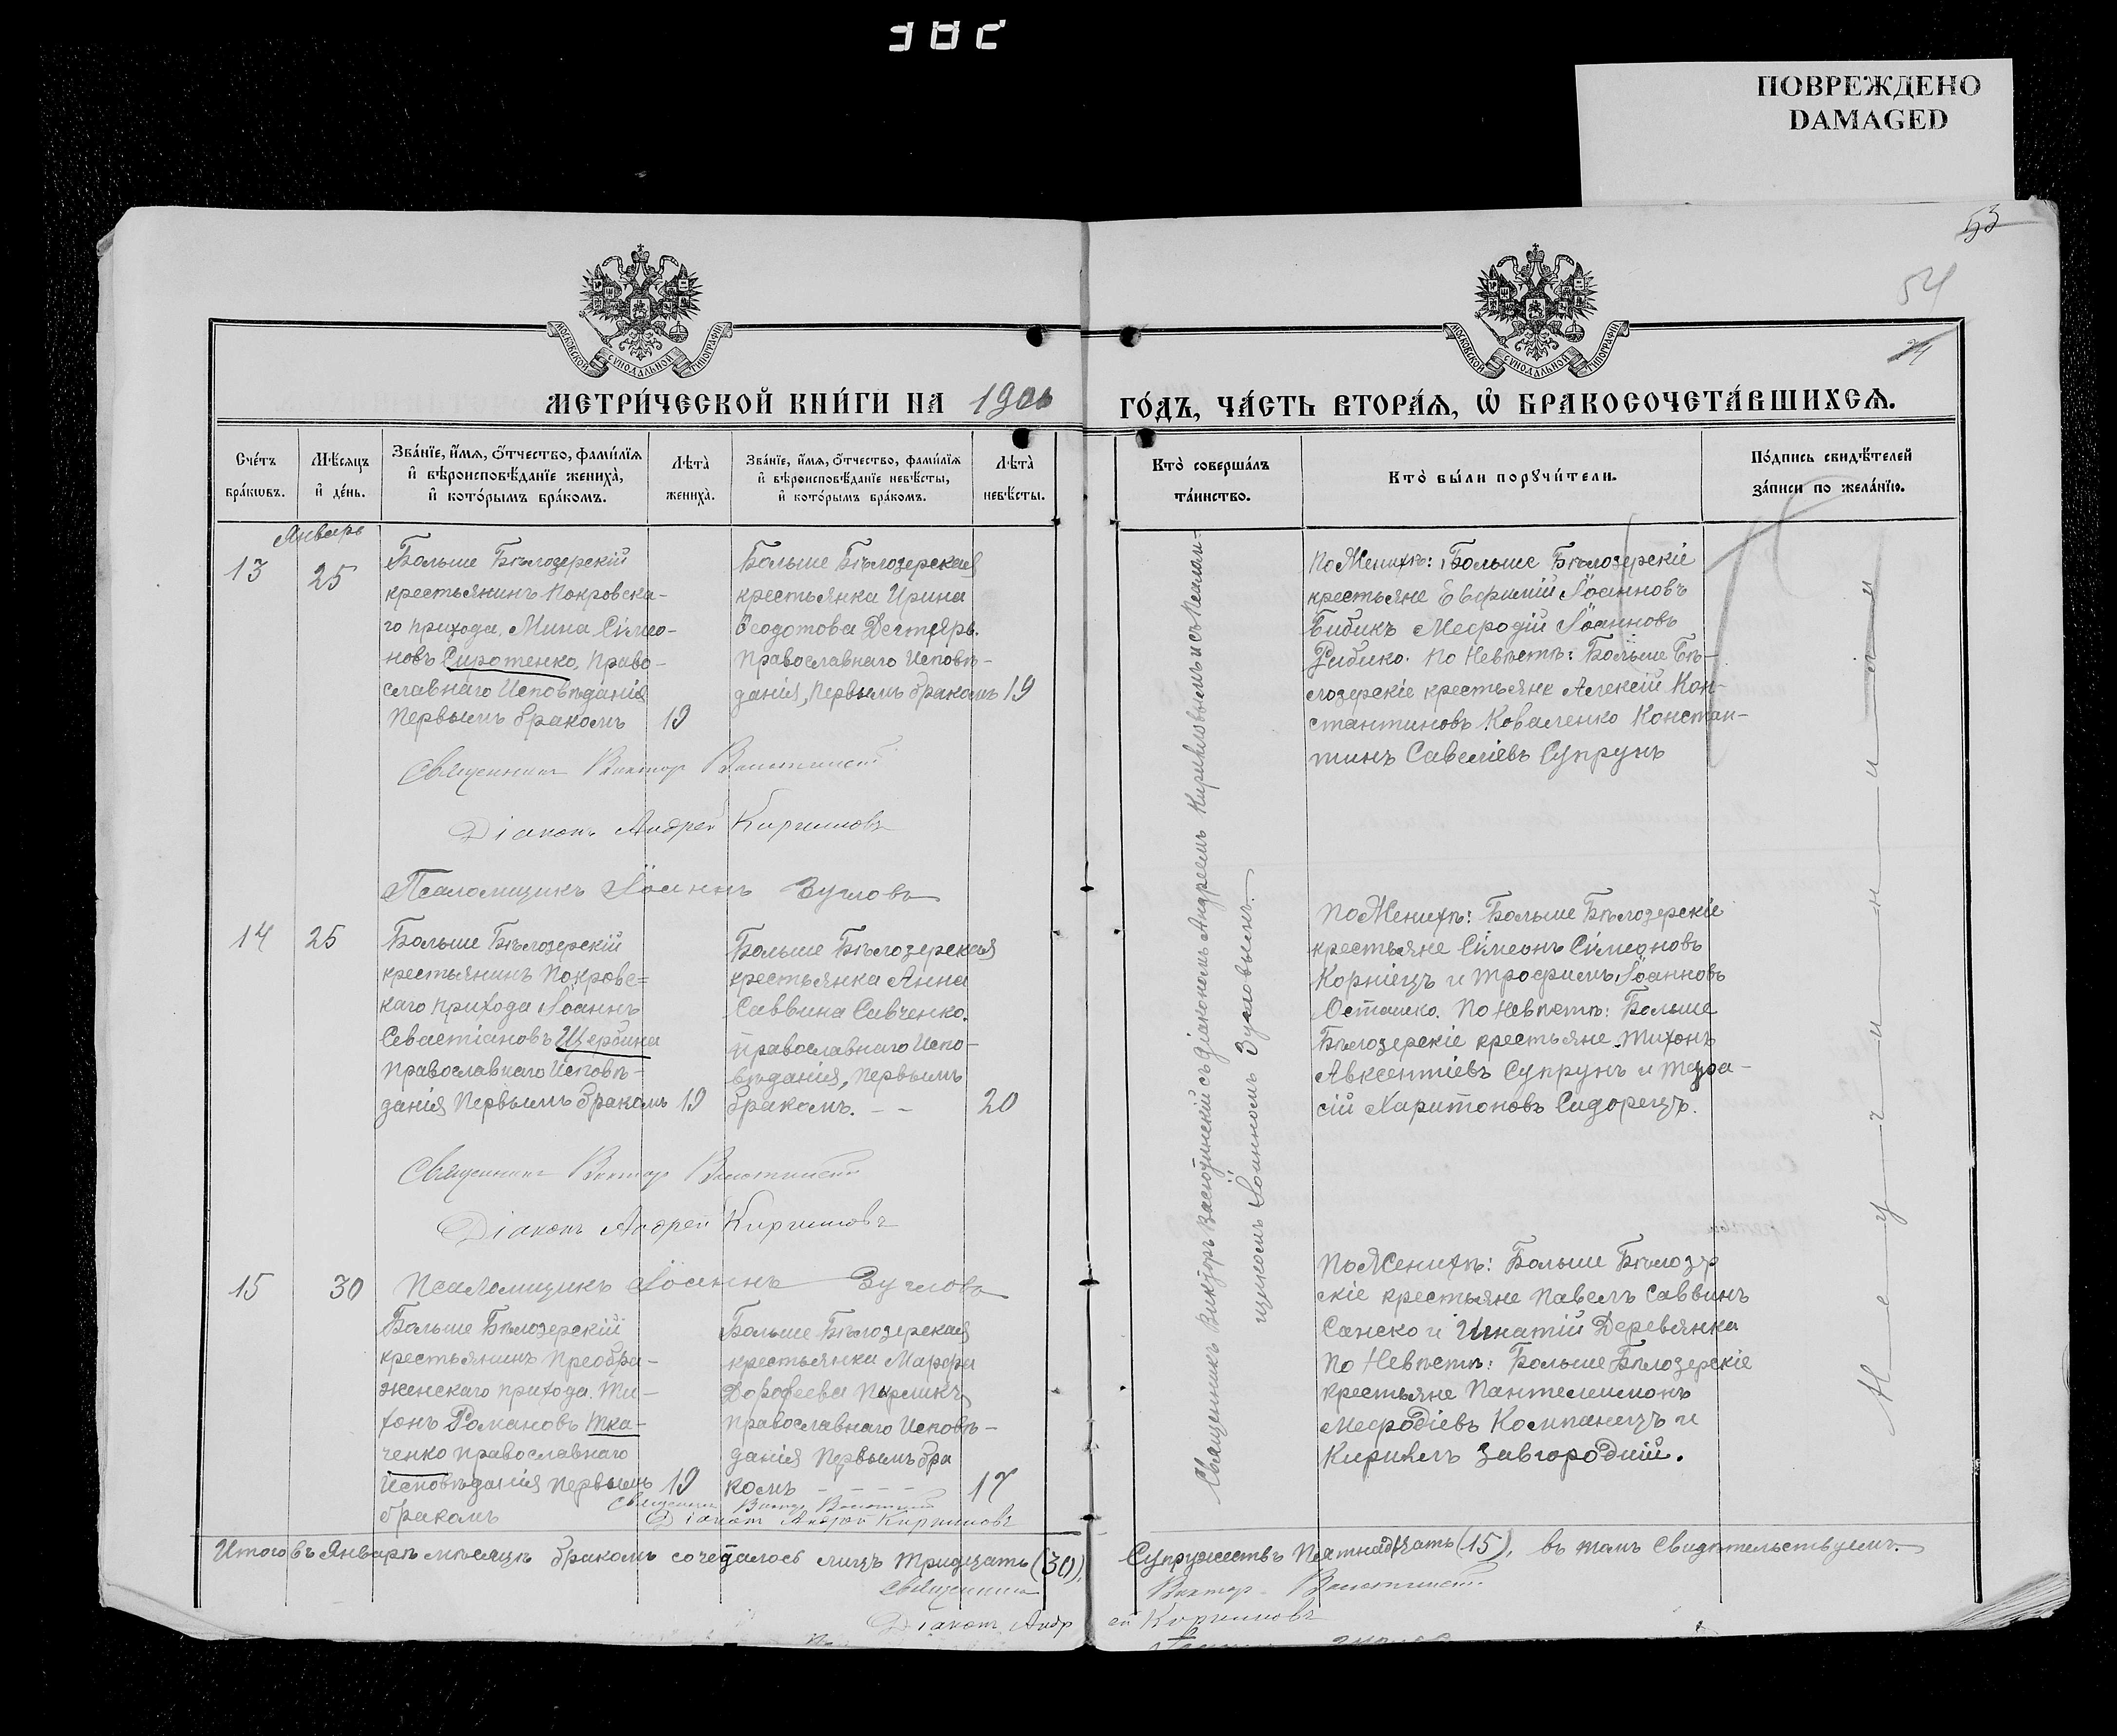 ПОВРЕЖДЕНО
DAMAGED
53
54
МОСКОВСКОЙ СѴНОДАЛЬНОЙ ТИПОГРАФІИ
МОСКОВСКОЙ СѴНОДАЛЬНОЙ ТИПОГРАФІИ
МЕТРИ́ЧЕСКОЙ КНИ́ГИ НА 1906
ГО́ДЪ, ЧА́СТЬ ВТОРА́Ѧ, Ѽ БРАКОСОЧЕТА́ВШИХСѦ.
Сче́тъ
бра́кѡвъ.
Мѣ́сѧцъ
и҆ де́нь.
Зва́нїе, и҆́мѧ, ѻ҆́тчество, фами́лїѧ
и҆ вѣроисповѣ́данїе жениха̀,
и҆ кото́рымъ бра́комъ.
Лѣта̀
жениха̀.
Зва́нїе, и҆́мѧ, ѻ҆́тчество, фами́лїѧ
и҆ вѣроисповѣ́данїе невѣ́сты,
и҆ кото́рымъ бра́комъ.
Лѣта̀
невѣ́сты.
Кто̀ соверша́лъ
та́инство.
Кто̀ бы́ли порꙋчи́тели.
По́дпись свидѣ́телей
за́писи по жела́нїю.
Январь
13
25
Больше Бѣлозерскій
крестьянинъ Покровска-
го прихода, Мина Сімео-
новъ Сиротенко, Право-
славнаго Исповѣданія
Первымъ бракомъ
19
Больше Бѣлозерская
крестьянка Ирина
Ѳеодотова Дегтярь.
Православнаго Исповѣ-
данія, Первымъ бракомъ
19
По Женихѣ: Больше Бѣлозерскіе
крестьяне Евфимій Іоанновъ
Бибикъ Мефодій Іоанновъ
Рибико. По Невѣстѣ: Больше Бѣ-
лозерскіе крестьяне Алексій Кон-
стантиновъ Коваленко Констан-
тинъ Савеліевъ Супрунъ
Священникъ Викторъ
Діаконъ Андрей Кирилловъ
Псаломщикъ Іоаннъ Зугловъ
14
25
Больше Бѣлозерскій
крестьянинъ Покровс=
каго прихода Іоаннъ
Севастіановъ Щербина
Православнаго Исповѣ-
данія Первымъ бракомъ
19
Больше Бѣлозерская
крестьянка Анна
Саввина Савченко.
православнаго Испо-
вѣданія, Первымъ
бракомъ. - -
20
По Женихѣ: Больше Бѣлозерскіе
крестьяне Сімеонъ Сімеоновъ
Корніецъ и Трофимъ Іоанновъ
Осташко. По Невѣстѣ: Больше
Бѣлозерскіе крестьяне Тихонъ
Авксентіевъ Супрунъ и Тера-
сій Харитоновъ Сидорецъ.
Священникъ Викторъ
Діаконъ Андрей Кирилловъ
Псаломщикъ Іоаннъ Зугловъ
15
30
Больше Бѣлозерскій
крестьянинъ Преобра-
женскаго прихода. Ти-
хонъ Романовъ Тка-
ченко Православнаго
Исповѣданія Первымъ
бракомъ
19
Больше Бѣлозерская
крестьянка Марфа
Дорофеева Пырликъ
Православнаго Исповѣ-
данія Первымъ бра
комъ - - - - -
17
По Женихѣ: Больше Бѣлозер
скіе крестьяне Павелъ Саввинъ
Санско и Игнатій Деревянка
По Невѣстѣ: Больше Бѣлозерскіе
крестьяне Пантелеимонъ
Мефодіевъ Компанецъ и
Кириллъ Завгородній.
Священникъ Викторъ
Діаконъ Андрей Кирилловъ
Священникъ Викторъ съ діакономъ Андреемъ Кирилловымъ и съ Псалом-
щикомъ Іоанномъ Зугловымъ.
Итого въ Январѣ мѣсяцѣ бракомъ сочеталось лицъ тридцать (30),
Супружествъ Пятнадцать (15), въ томъ свидѣтельствуемъ.
Священникъ
Викторъ
Діаконъ Андрей Кирилловъ